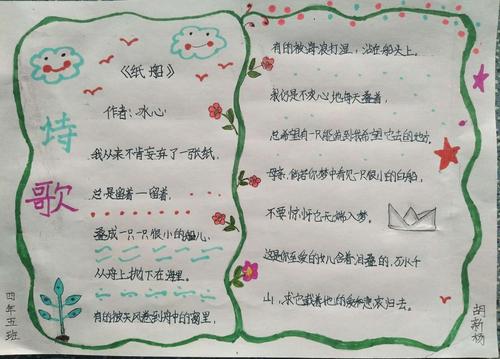 诗歌
《纸船》
作者:冰心
我从来不肯妄弃了一张纸,
总是留着一留着,
叠成一只一只很小的船儿,
从舟上抛下在海里。
有的被天风卷到舟中的窗里,
有的被海浪打湿,沾在船头上。
我仍是不灰心地每天叠着,
总希望有一只能流到我希望它去的地方。
母亲,倘若你梦中看见一只很小的白船,
不要惊讶它无端入梦。
这是你至爱的女儿含着泪叠的,万水千
山,求它载着她的爱和悲哀归去。
四年五班
胡新杨